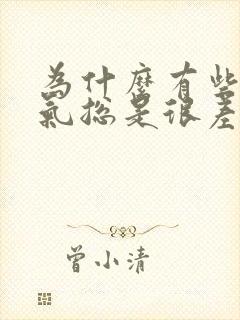 为什麼有些
氣總是很差
曾小清